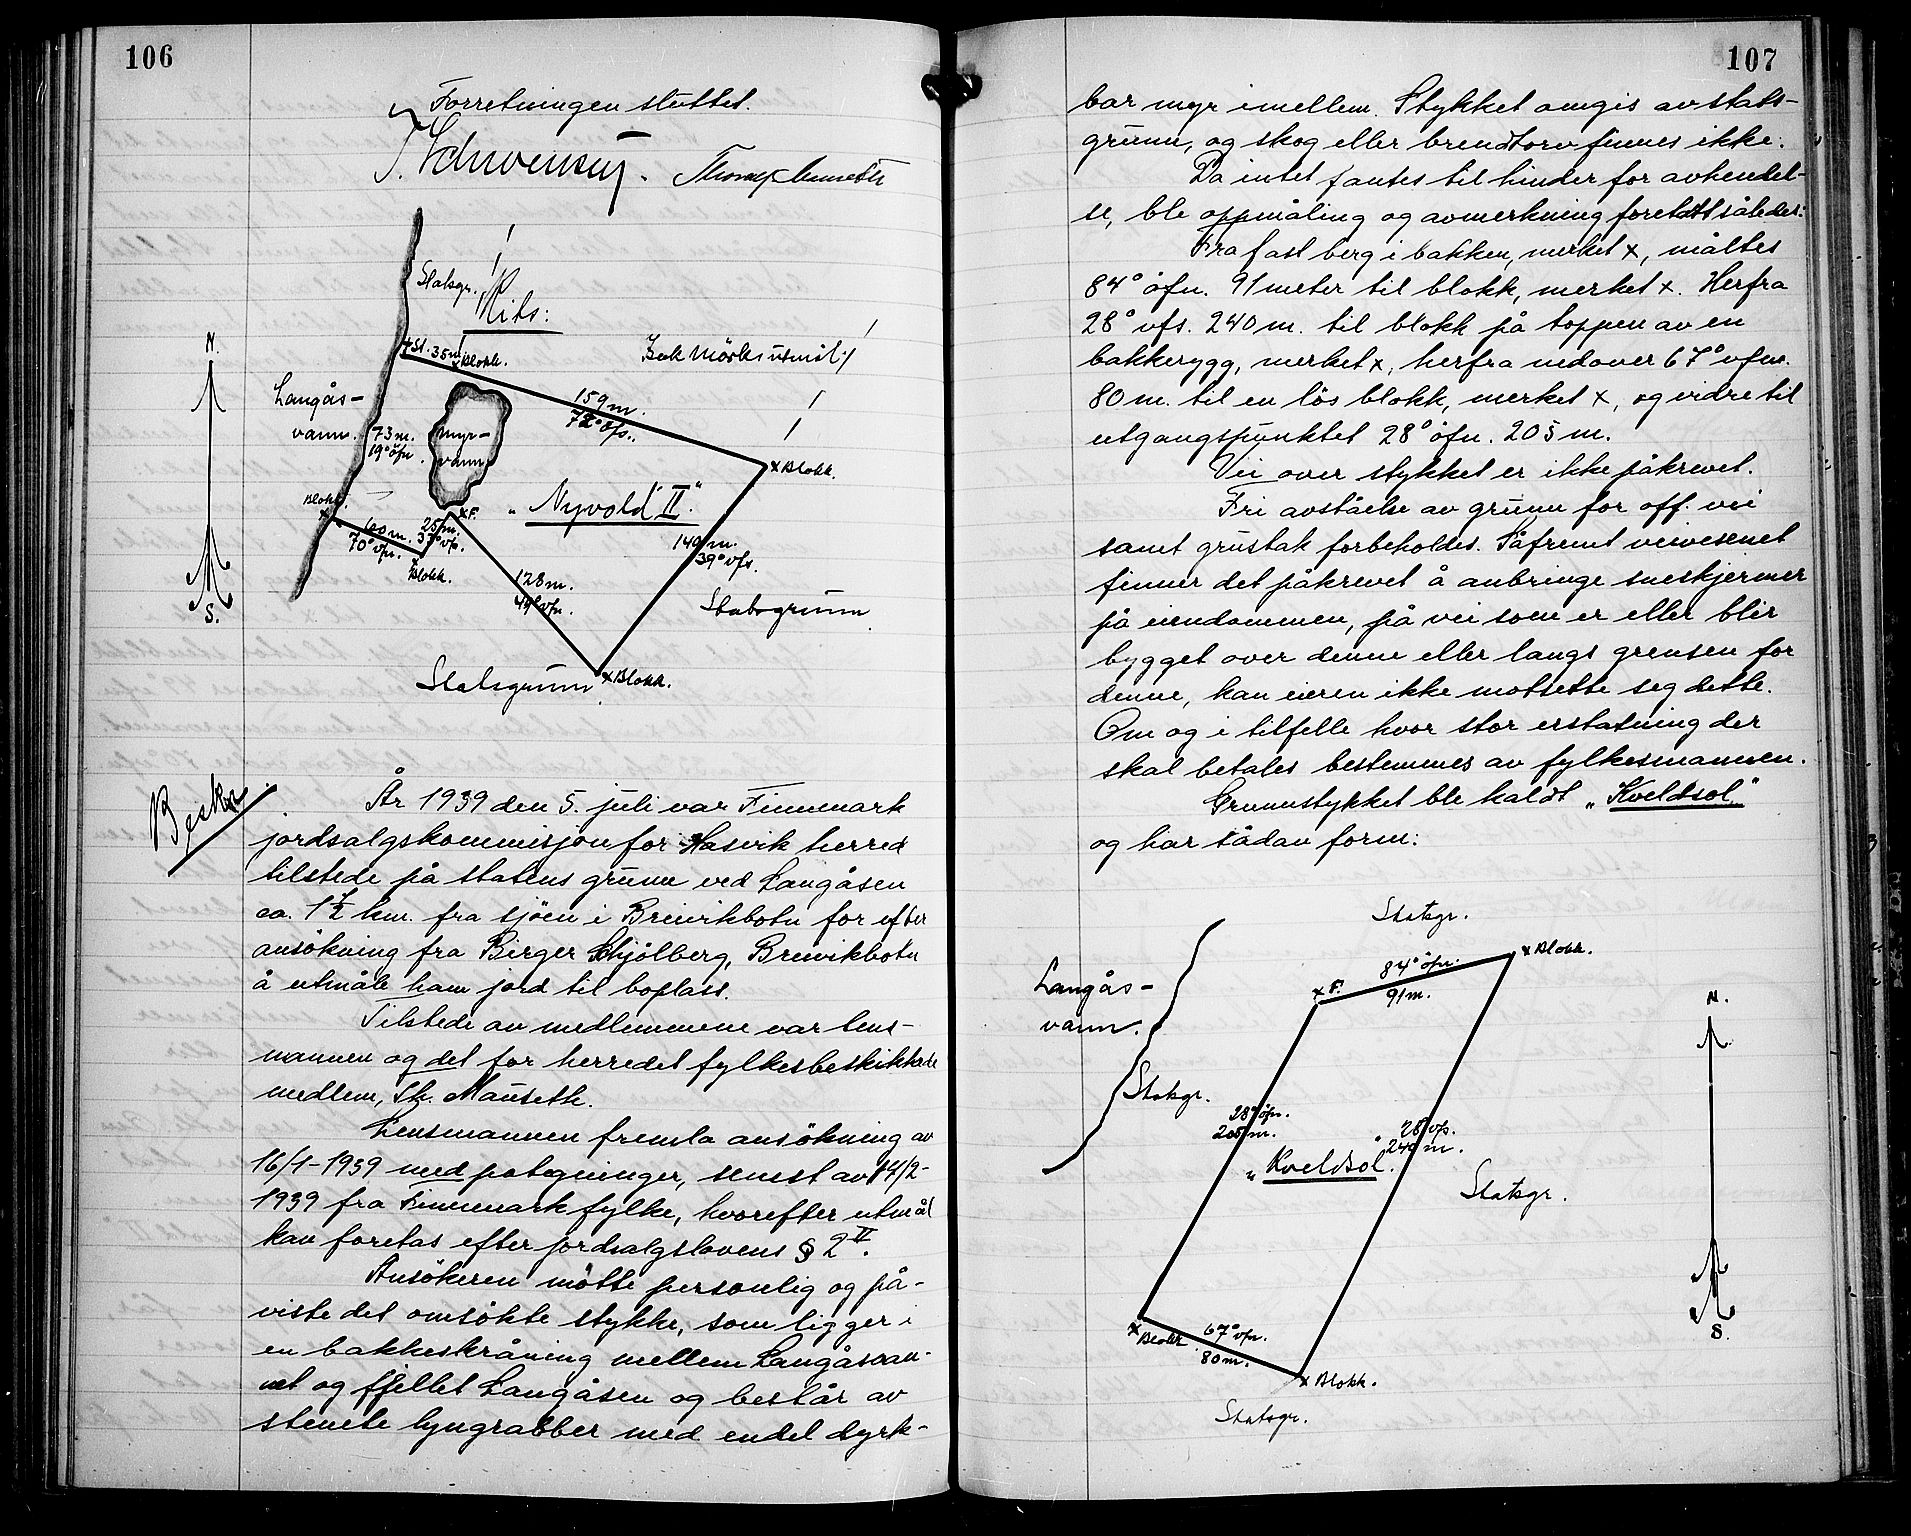 106
Forretningen sluttet.
N.
S.
Statsgr.
Rits:
+St. 35m
x Blokk.
Isak Mörks utmål
Langås-
vann.
73 m.
19° öfn.
myr-
vann
159 m.
72° öfs.
x Blokk.
Blokk.
x
60 m.
70° vfn.
25 m.
37° vfs.
xF.
x
Blokk.
„Nyvold II".
140 m.
39° vfs.
128 m.
49° vfn.
Statsgrunn
Statsgrunn
x Blokk.
Beskr.
År 1939 den 5. juli var Finnmark
jordsalgskommisjon for Hasvik herred
tilstede på statens grunn ved Langåsen
ca. 1½ km. fra sjöen i Breivikbotn for efter
ansökning fra Birger Schjölberg, Breivikbotn
å utmåle ham jord til boplass.
Tilstede av medlemmene var lens-
mannen og det for herredet fylkesbeskikkede
medlem, Th. Mauseth.
Lensmannen fremla ansökning av
16/1-1939 med påtegninger, senest av 14/2-
1939 fra Finnmark fylke, hvorefter utmål
kan foretas efter jordsalgslovens § 2 II.
Ansökeren mötte personlig og på-
viste det omsökte stykke, som ligger i
en bakkeskråning mellem Langåsvan-
net og fjellet Langåsen og består av
stenete lyngrabber med endel dyrk-
107
bar myr imellem. Stykket omgis av stats-
grunn, og skog eller brendtorv finnes ikke.
Da intet fantes til hinder for avhendel-
se, ble oppmåling og avmerkning foretatt således:
Fra fast berg i bakken, merket x, måltes
84° öfn. 91 meter til blokk, merket x. Herfra
28° vfs. 240 m. til blokk på toppen av en
bakkerygg, merket x, herfra nedover 67° vfn.
80 m. til en lös blokk, merket x, og vidre til
utgangspunktet 28° öfn. 205 m.
Vei over stykket er ikke påkrevet.
Fri avståelse av grunn for off. vei
samt grustak forbeholdes. Såfremt veivesenet
finner det påkrevet å anbringe sneskjermer
på eiendommen, på vei som er eller blir
bygget over denne eller langs grensen for
denne, kan eieren ikke motsette seg dette.
Om og i tilfelle hvor stor erstatning der
skal betales bestemmes av fylkesmannen.
Grunnstykket ble kaldt „Kveldsol"
og har sådan form:
Statsgr.
Langås-
vann.
x F.
84° öfn.
91 m.
x Blokk.
N.
Statsgr.
28° öfn.
205 m.
28° vfs.
240 m.
„Kveldsol".
Statsgr.
x Blokk.
67° vfn.
80 m.
x Blokk.
Statsgr.
S.